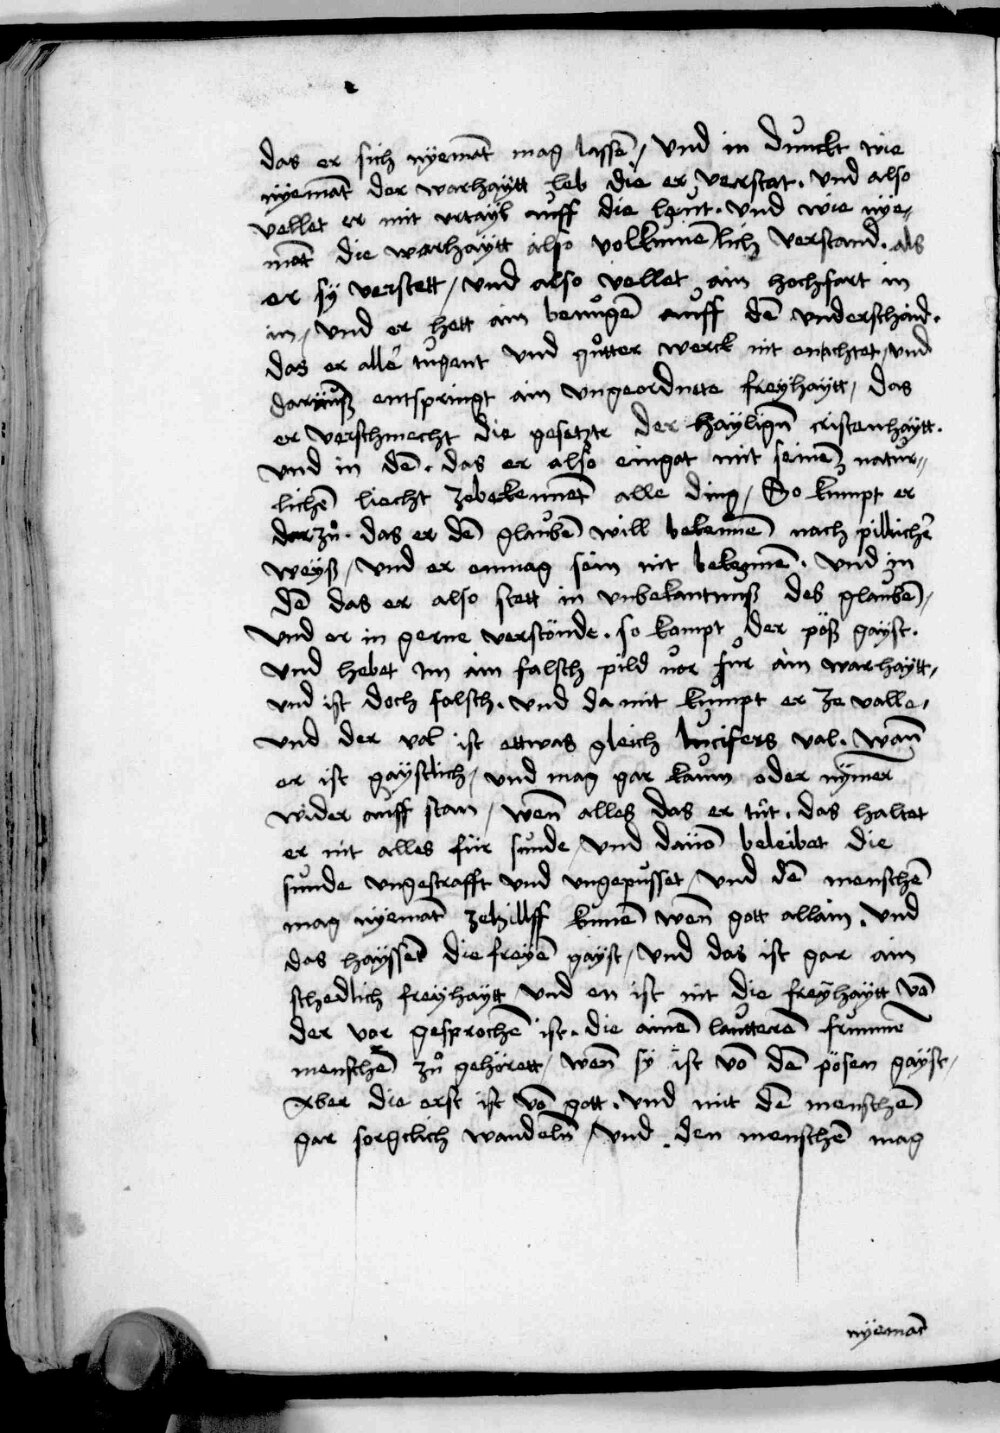 das er sich nyemāt mag lassē / Vnd in dunckt wie
nyemāt der warhaytt leb die er verstat. Vnd also
vellet er mit vrtayl auff die leut. Vnd wie nye-
māt die warhaytt also volkumēlich verstand. als
er sy verstett / Vnd also vellet ain hochfart in
in / Vnd er hett ain benůgē auff dē vnderschaid.
das er aller tugent Vnd gůtter werck nit enachtet / vnd
darauß entspringt ain vngeordnete freyhaytt / das
er verschmecht die gesetzte der hayligē cristenhaytt.
Vnd in dē. das er also eingat mit seinē natur-
lichē liecht zebekennet alle ding / So kumpt er
darzů. das er dē glaubē will bekennē nach pillicher
weyß / Vnd er enmag sein nit bekennē. Vnd in
dē das er also stett in vnbekantnuß des glaubē /
Vnd er in gerne verstönde. so kompt der pöß gayst.
Vnd hebet im ain falsch pild vor für ain warhaytt /
vnd ist doch falsch. Vnd da mit kumpt er ze valle /
Vnd der val ist ettwas gleich lucifers val. Wañ
er ist gaystlich / Vnd mag gar kaum oder nymer
wider auff stan / wen̄ alles das er tůt. das haltet
er nit alles für sunde / Vnd dauō beleibet die
sunde vngestrafft Vnd vngepüsset / Vnd dē menschē
mag nyemāt zehillff kumē wen̄ gott allain. Vnd
das hayssēt die freyē gayst / Vnd das ist gar ain
schedlich freyhaytt / Vnd en ist nit die freyhaytt vō
der vor gesprochē ist. die ainē lautterē frummē
menschē zů gehörett / wen̄ sy ist vō dē pösen gayst /
Aber die erst ist vō gott. Vnd mit dē menschē
gar sorgclich wandeln̄ / Vnd den menschē mag
nyemāt